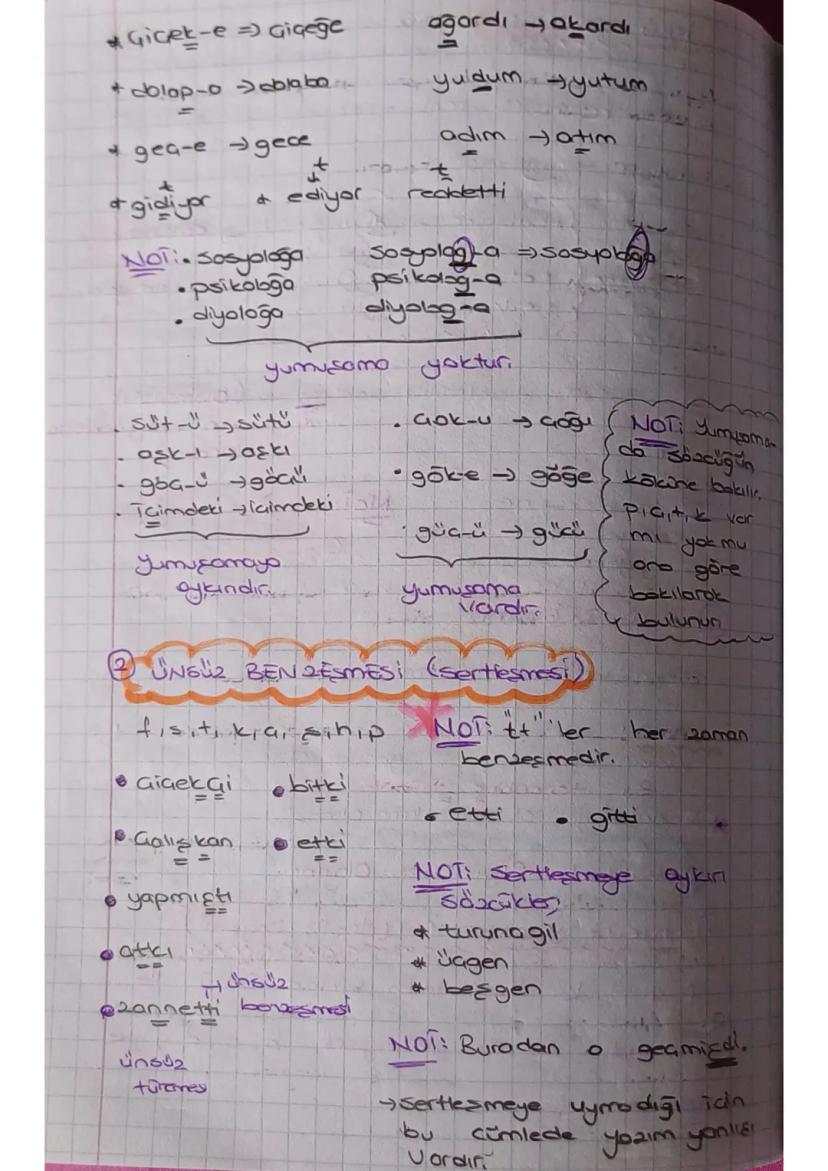 * Çiçek-e => Çiçeğe    ağardı → akardı
* dolap-a → dolaba    yudum → yutum
* geç-e → gece    adım → atım
t    t    t
* gidiyor    * ediyor    reddetti
NOT: • sosyoloğa    sosyolog-a => sosyoloğa
• psikoloğa    psikolog-a
• diyaloğa    diyalog-a
yumuşama yoktur.
• süt-ü → sütü
• aşk-ı → aşkı
• göç-ü → göçü
• İçimdeki → içimdeki
yumuşamaya
aykırıdır.
• çok-u → çoğu
• gök-e → göğe
• güç-ü → gücü
yumuşama
vardır.
NOT: Yumuşama
da sözcüğün
köküne bakılır.
p, ç, t, k var
mı yok mu
ona göre
bakılarak
bulunur.
② ÜNSÜZ BENZEŞMESİ (sertleşmesi)
f, s, t, k, ç, ş, h, p
NOT: "tt" 'ler her zaman
benzeşmedir.
• etti    • gitti
• Çiçekçi    • bitki
• Çalışkan    • etki
• yapmıştı
• atkı
→ ünsüz
• zannetti benzeşmesi
ünsüz
türemesi
NOT: Sertleşmeye aykırı
sözcükler;
* turunçgil
* üçgen
* beşgen
NOT: Buradan o geçmişdi.
→ sertleşmeye uymadığı için
bu cümlede yazım yanlışı
vardır.